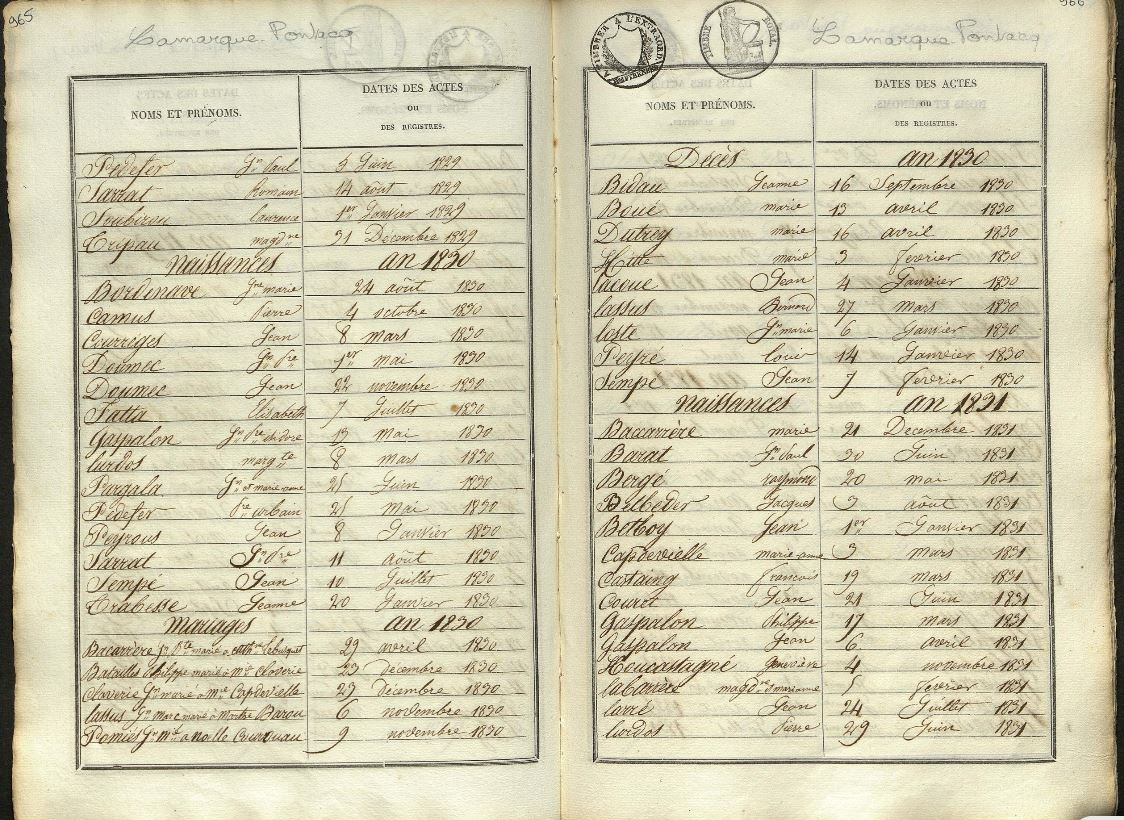 965
Lamarque Pontacq
NOMS ET PRÉNOMS.
DATES DES ACTES
OU
DES REGISTRES.
Pédefer Jn Paul 5 Juin 1829
Sarrat Romain 14 août 1829
Soubirou Laurence 1er Janvier 1829
Tripau magdne 31 Décembre 1829
Naissances an 1830
Bordenave Jne marie 24 août 1830
Camus Pierre 4 octobre 1830
Courrèges Jean 8 mars 1830
Doumec Jn Pre 1er mai 1830
Doumec Jean 22 novembre 1830
Fatta Elisabeth 7 Juillet 1830
Gaspalon Jn Pre isidore 13 Mai 1830
Lurdos margte 8 mars 1830
Pargala Jn et marie anne 25 Juin 1830
Pédefer Pre urbain 25 mai 1830
Peyrous Jean 8 Janvier 1830
Sarrat Jn Pre 11 août 1830
Sempé Jean 10 Juillet 1830
Trabesse Jeanne 20 Janvier 1830
Mariages an 1830
Bacarrère Jn Bte marié à 29 avril 1830
Batailles Philippe marié à Mie Claverie 23 décembre 1830
Claverie Jn marié à Mie Capdevielle 27 Décembre 1830
Lassus Jn Marc marié à Marthe Barou 6 novembre 1830
Pomiés Jn 9 novembre 1830
966
TIMBRE A L'EXTRAORD.
TIMBRE ROYAL
Lamarque Pontacq
NOMS ET PRÉNOMS.
DATES DES ACTES
OU
DES REGISTRES.
Décès an 1830
Bidau Jeanne 16 Septembre 1830
Boué marie 13 avril 1830
Dutrey marie 16 avril 1830
Hitte marie 3 fevrier 1830
Lacoue Jean 4 Janvier 1830
Lassus Bernard 27 mars 1830
Loste Jne marie 6 Janvier 1830
Peyré Louis 14 Janvier 1830
Sempé Jean 7 fevrier 1830
Naissances an 1831
Baccarrère marie 21 Décembre 1831
Barat Jn Paul 30 Juin 1831
Bergé raymond 20 mai 1831
Belleder Jacques 3 août 1831
Betboy Jean 1er Janvier 1831
Capdevielle marie anne 3 mars 1831
Castaing francois 19 mars 1831
Courot Jean 21 Juin 1831
Gaspalon Philippe 17 mars 1831
Gaspalon Jean 6 avril 1831
Houcastagné Geneviève 4 novembre 1831
Labarrère magdne et marianne 5 fevrier 1831
Larré Jean 24 Juillet 1831
Lurdos Pierre 29 Juin 1831